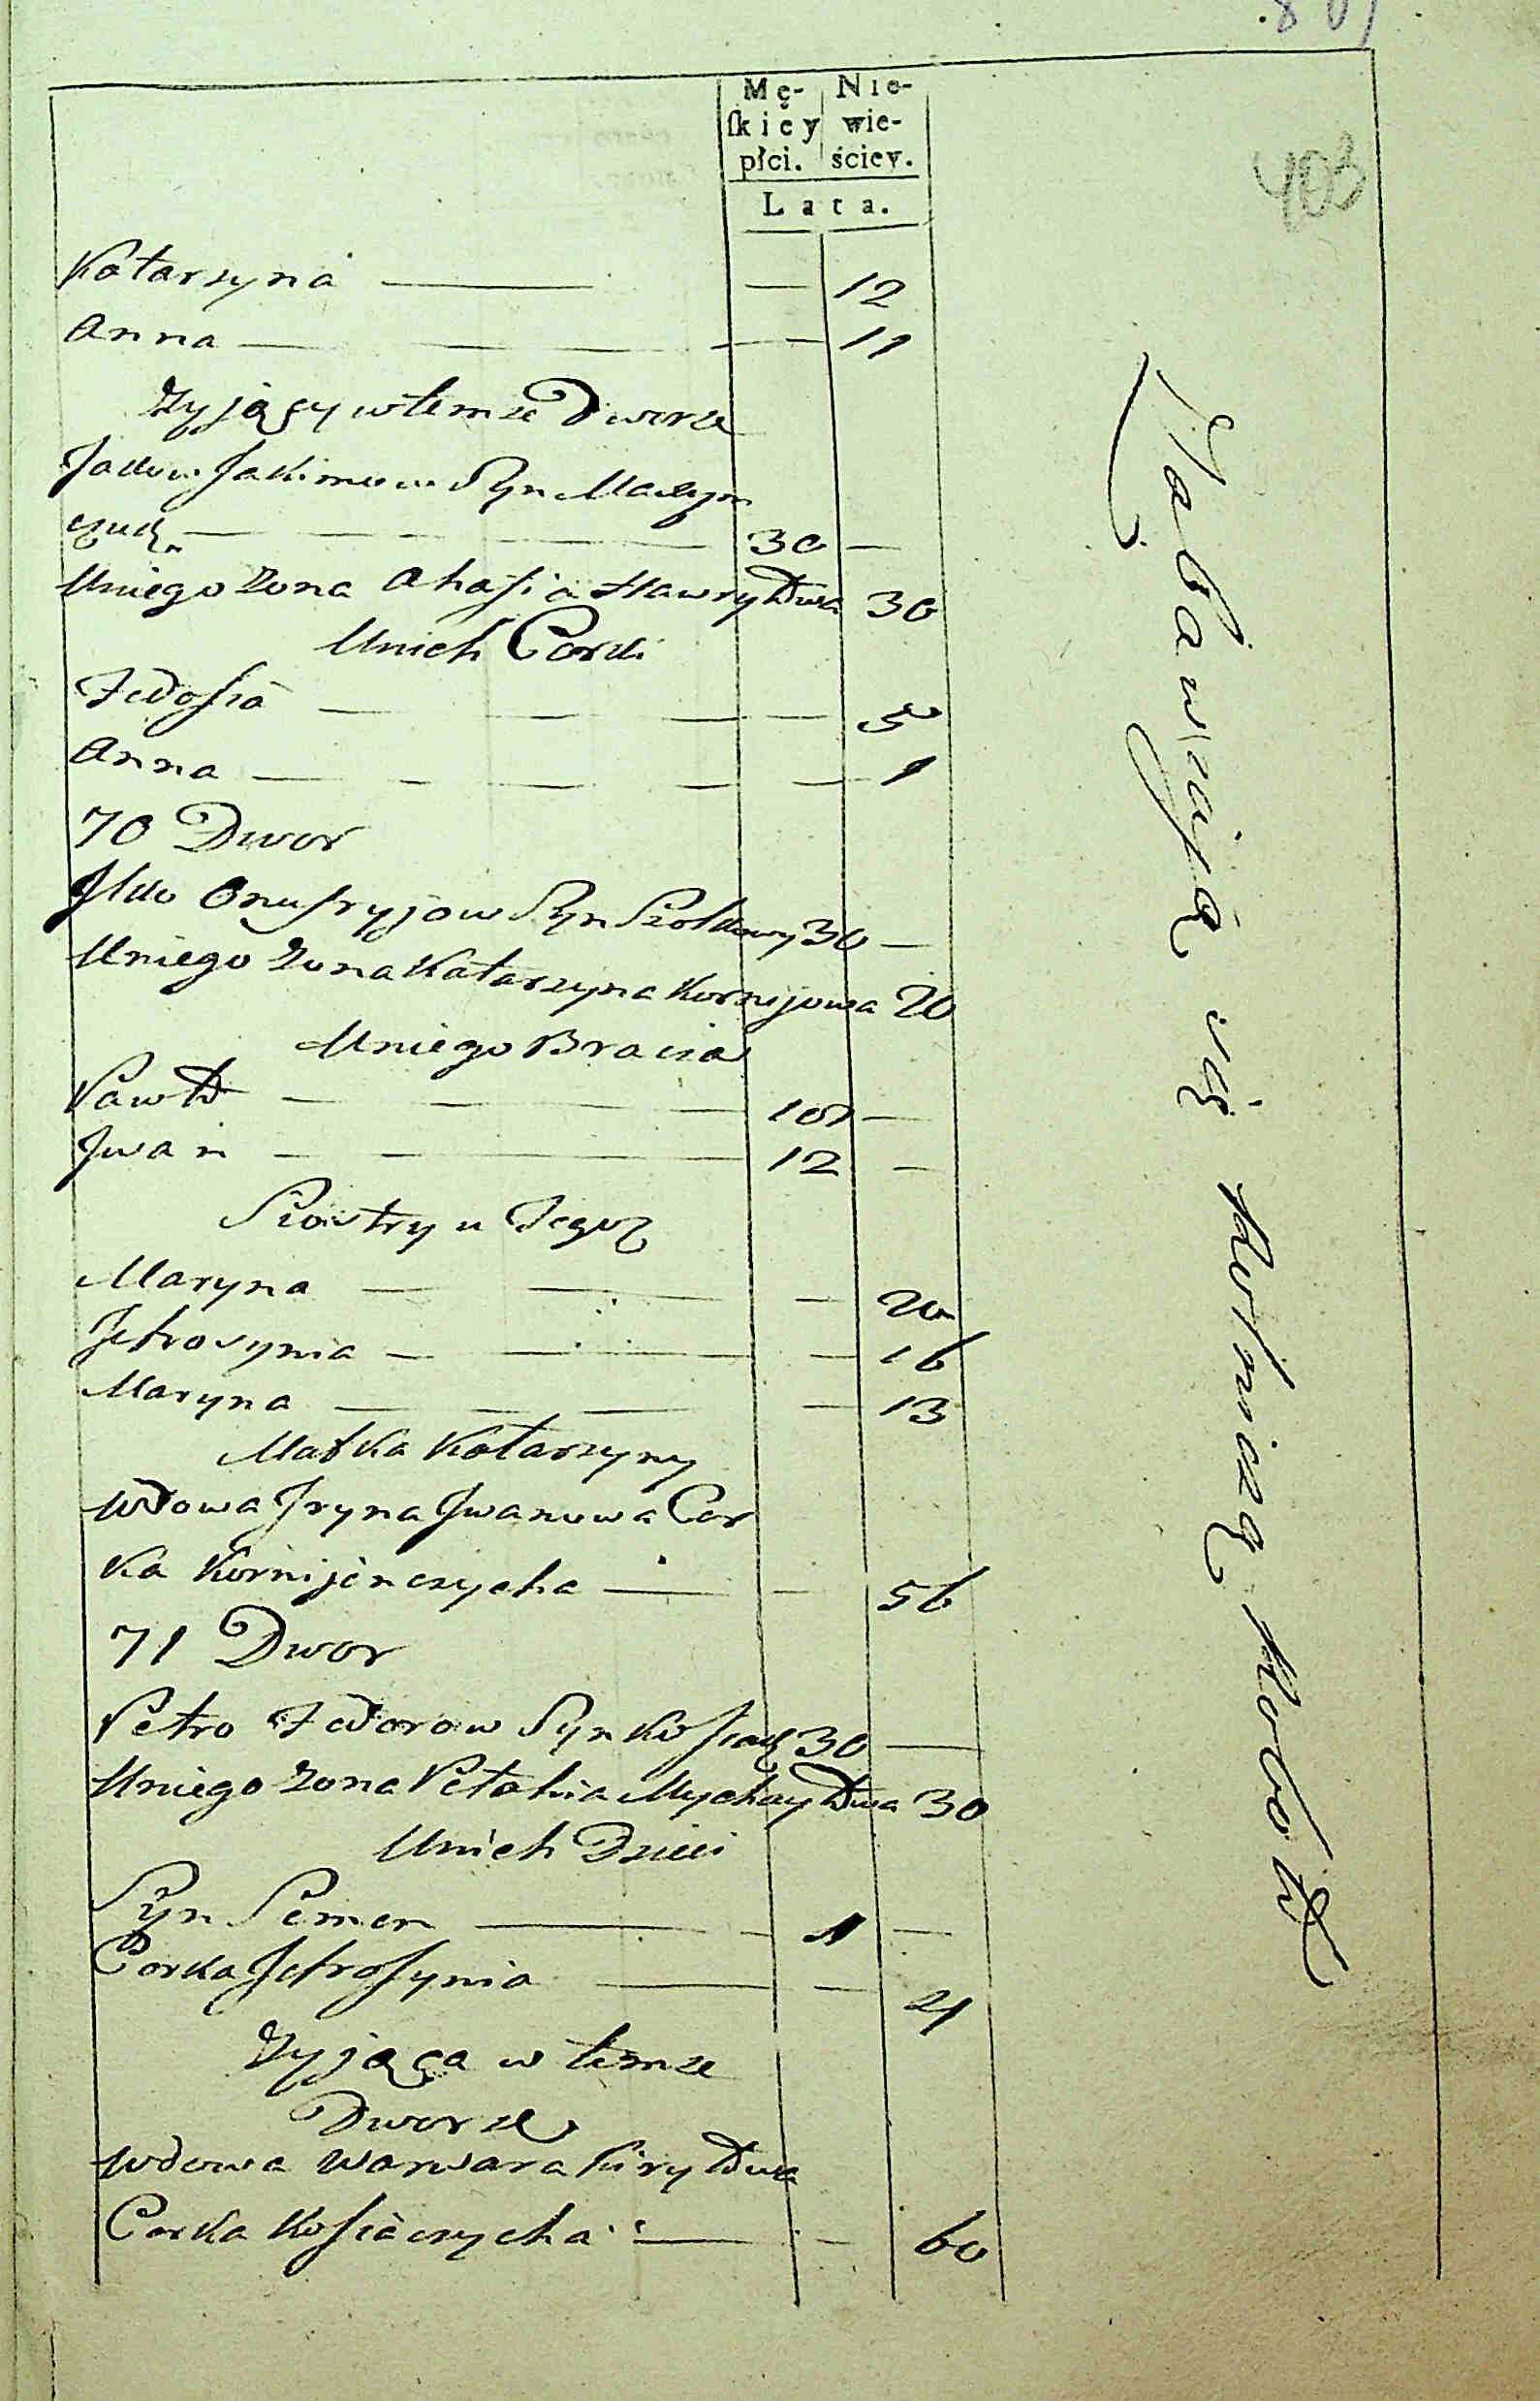 403
Mę- Nie-
ſkiey wie-
płci. ściey.
Lata.
Katarzyna — — 12
Anna — — — — 11
Zyjący w temze Dworze
Jakimow Syn Maxym
czuk — — — 30 —
Uniego zona Ahafia Hawryłowa 30
Unich Corki
Fedosia — — — — 5
Anna — — — — 1
70 Dwor
Onufryjow Syn 30 —
Uniego zona Katarzyna Kornijowa 20
Uniego Bracia
Paweł — — — —
Jwan — — — 12 —
Siostry u Jego
Maryna — — — 20
Jefrosynia — — — 16
Maryna — — — 13
Matka Katarzyny
wdowa Jryna Jwanowa Cor
ka Kornijenczycha — — 56
71 Dwor
Petro Fedorow Syn Kosiak 30 —
Uniego zona Petahia Mychayłowa 30
Unich Dzieci
Syn Semen — — 1 —
Corka Jefrosynia — — 4
Zyjąca w temze
Dworze
wdowa Warwara Kiryłowa
Corka Kosiaczycha — — 60
Zabawiają się Rolniczą Robotą